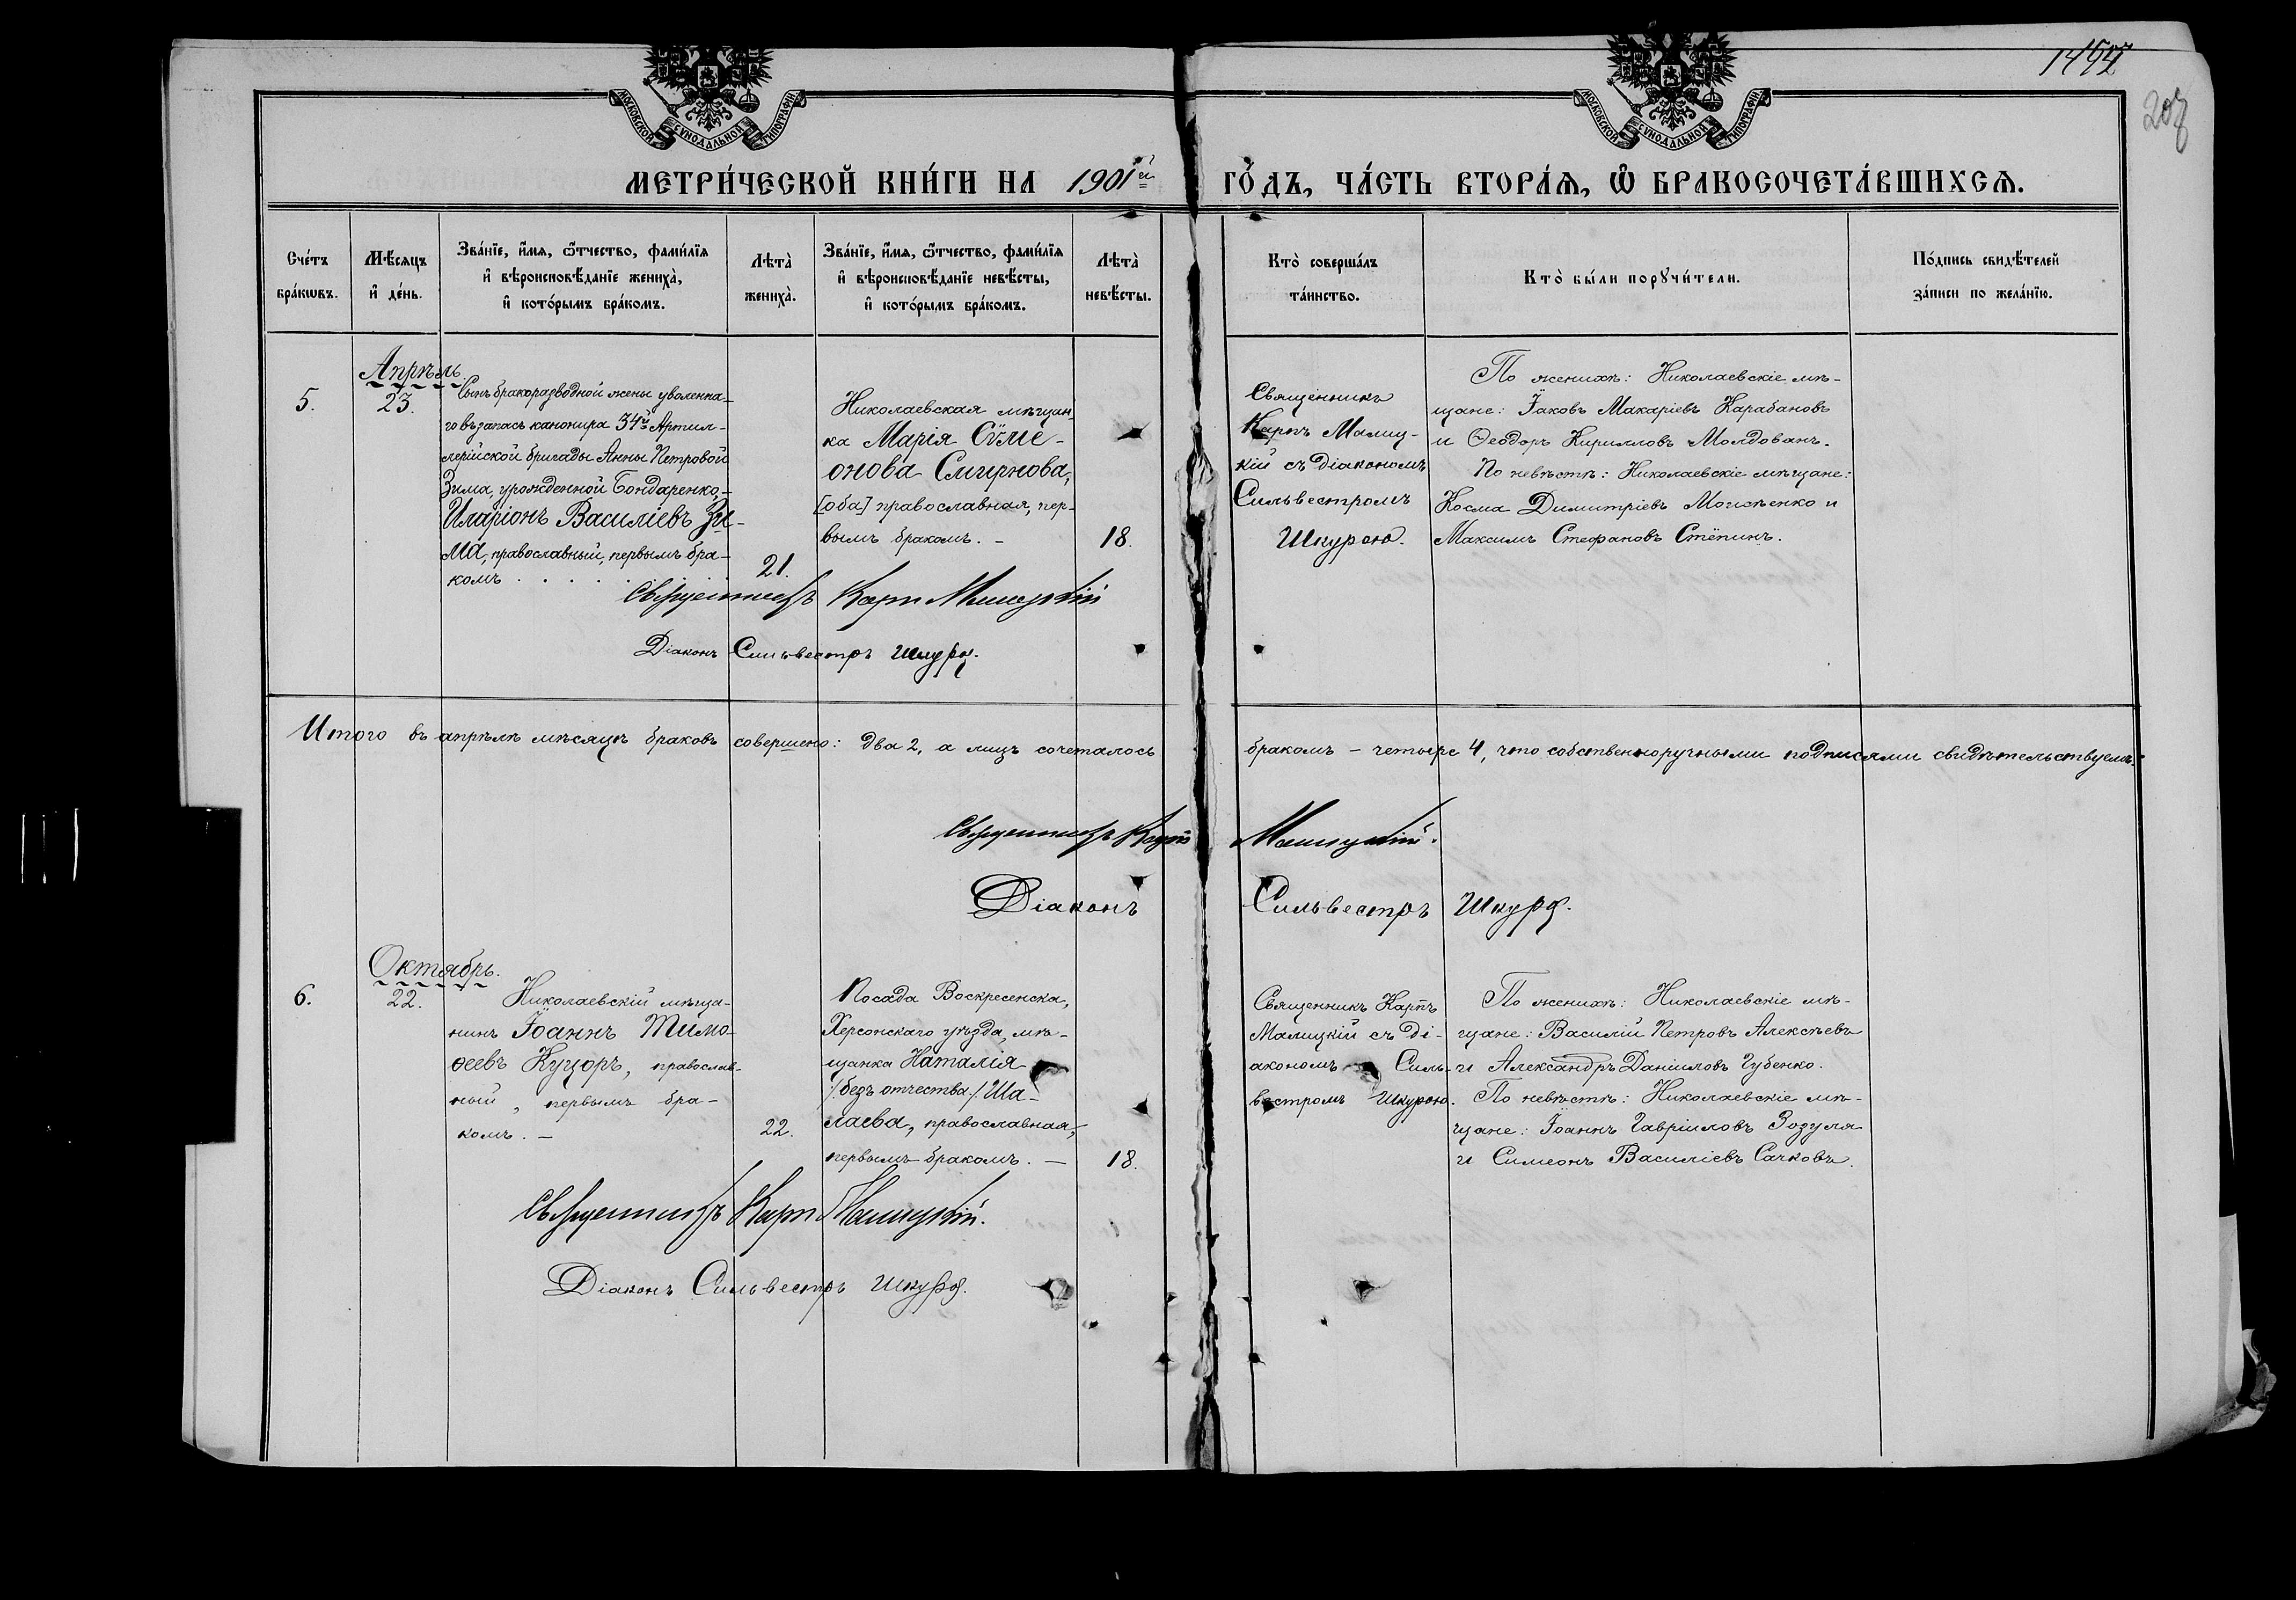 МОСКОВСКОЙ СѴНОДАЛЬНОЙ ТИПОГРАФІИ
МОСКОВСКОЙ СѴНОДАЛЬНОЙ ТИПОГРАФІИ
МЕТРИ́ЧЕСКОЙ КНИ́ГИ НА 1901й ГО́ДЪ, ЧА́СТЬ ВТОРА́Я, Ѡ БРАКОСОЧЕТА́ВШИХСЯ.
Сче́тъ
бра́кѡвъ.
Мѣ́сяцъ
и҆ де́нь.
Зва́нїе, и҆́мя, ѻ҆́тчество, фами́лїя
и҆ вѣроисповѣ́данїе жениха̀,
и҆ кото́рымъ бра́комъ.
Лѣта̀
жениха̀.
Зва́нїе, и҆́мя, ѻ҆́тчество, фами́лїя
и҆ вѣроисповѣ́данїе невѣ́сты,
и҆ кото́рымъ бра́комъ.
Лѣта̀
невѣ́сты.
Кто̀ соверша́лъ
та́инство.
Кто̀ бы́ли порꙋчи́тели.
По́дпись свидѣ́телей
за́писи по жела́нїю.
5.
Апрѣль.
23.
Сынъ бракоразводной жены уволенна-
го въ запасъ канонира 34й Артил-
лерійской бригады Анны Петровой
Зима, урожденной Бондаренко,-
Иларіонъ Василіевъ Зи-
ма, православный, первымъ бра-
комъ . . . . . . .
21.
Николаевская мѣщан-
ка Марія Сѵме-
онова Смирнова,
[оба] православная, пер-
вымъ бракомъ. -
18.
Священникъ
Карпъ Малиц-
кій съ діакономъ
Сильвестромъ
Шкурою.
По женихѣ: Николаевскіе мѣ-
щане: Іаковъ Макаріевъ Карабановъ
и Ѳеодоръ Кирилловъ Молдованъ.
По невѣстѣ: Николаевскіе мѣщане:
Косма Димитріевъ Моисѣенко и
Максимъ Стефановъ Стёпинъ.
Священникъ Карпъ Малицкій
Діаконъ Сильвестръ Шкура.
Итого въ апрѣлѣ мѣсяцѣ браковъ совершено: два 2, а лицъ сочеталось бракомъ - четыре 4, что собственноручными подписями свидѣтельствуемъ:
Священникъ Карпъ Малицкій.
Діаконъ Сильвестръ Шкура.
6.
Октябрь.
22.
Николаевскій мѣща-
нинъ Іоаннъ Тимо-
ѳеевъ Куцоръ, православ-
ный, первымъ бра-
комъ. -
22.
Посада Воскресенска,
Херсонскаго уѣзда, мѣ-
щанка Наталія
/безъ отчества/ Ша-
лаева, православная,
первымъ бракомъ. -
18.
Священникъ Карпъ
Малицкій съ ді-
акономъ Силь-
вестромъ Шкурою.
По женихѣ: Николаевскіе мѣ-
щане: Василій Петровъ Алексѣевъ
и Александръ Даниловъ Губенко.
По невѣстѣ: Николаевскіе мѣ-
щане: Іоаннъ Гавріиловъ Зозуля
и Симеонъ Василіевъ Сачковъ.
Священникъ Карпъ Малицкій.
Діаконъ Сильвестръ Шкура.